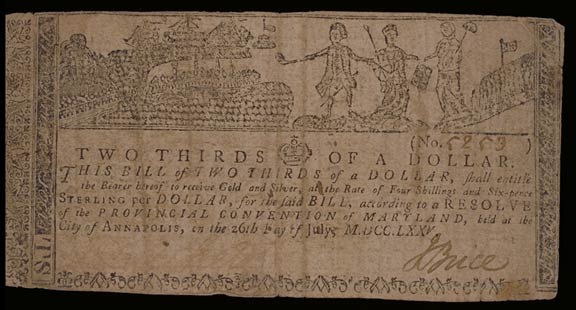 (No. 5253)
TWO THIRDS OF A DOLLAR.
THIS BILL of TWO THIRDS of a DOLLAR, shall entitle
the Bearer hereof to receive Gold and Silver, at the Rate of Four Shillings and Six-pence
STERLING per DOLLAR, for the said BILL, according to a RESOLVE
of the PROVINCIAL CONVENTION of MARYLAND, held at the
City of ANNAPOLIS, on the 26th Day of July, M.DCC.LXXV.
J Brice